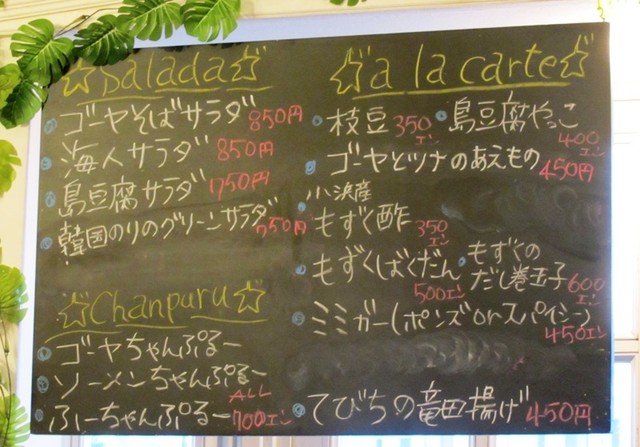 ☆Salada☆
ゴーヤそばサラダ 850円
海人サラダ 850円
島豆腐サラダ 750円
韓国のりのグリーンサラダ 750円
☆Chanpuru☆
ゴーヤちゃんぷるー
ソーメンちゃんぷるー
ふーちゃんぷるー ALL 700エン
☆a la carte☆
枝豆 350エン 島豆腐やっこ 400エン
ゴーヤとツナのあえもの 450円
小浜産
もずく酢 350エン
もずくばくだん 500エン もずくの
だし巻玉子 600エン
ミミガー(ポンズorスパイシー) 450エン
てびちの竜田揚げ 450円